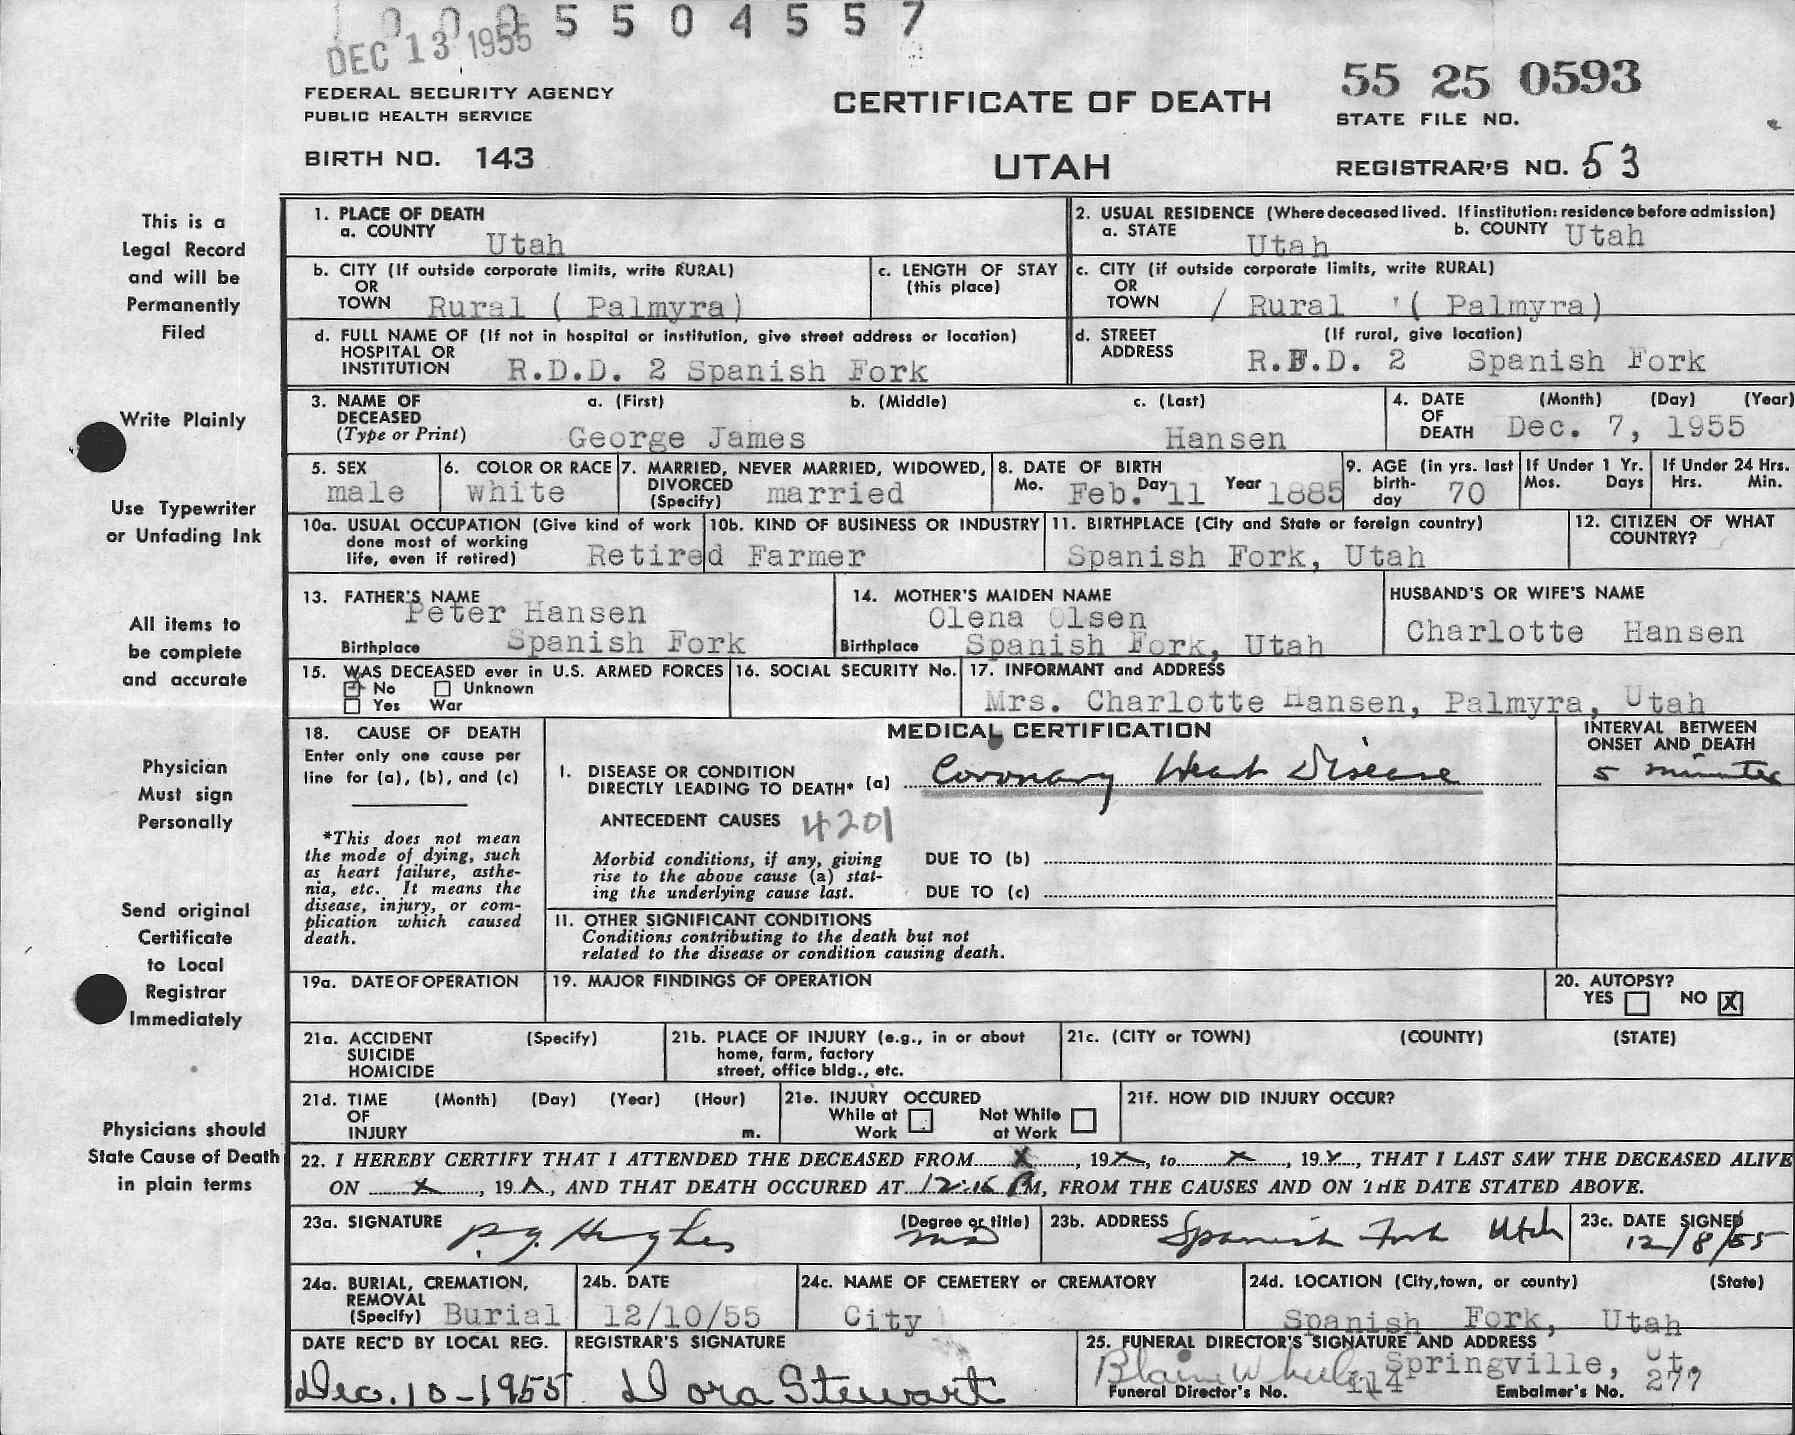 1 0 0 0 5 5 0 4 5 5 7
DEC 13 1955
FEDERAL SECURITY AGENCY
PUBLIC HEALTH SERVICE
BIRTH NO. 143
CERTIFICATE OF DEATH
UTAH
55 25 0593
STATE FILE NO.
REGISTRAR'S NO. 53
This is a
Legal Record
and will be
Permanently
Filed
Write Plainly
Use Typewriter
or Unfading Ink
All items to
be complete
and accurate
Physician
Must sign
Personally
Send original
Certificate
to Local
Registrar
Immediately
Physicians should
State Cause of Death
in plain terms
1. PLACE OF DEATH
a. COUNTY Utah
2. USUAL RESIDENCE (Where deceased lived. If institution: residence before admission)
a. STATE Utah b. COUNTY Utah
b. CITY (If outside corporate limits, write RURAL)
OR
TOWN Rural ( Palmyra)
c. LENGTH OF STAY
(this place)
c. CITY (if outside corporate limits, write RURAL)
OR
TOWN / Rural '( Palmyra)
d. FULL NAME OF (If not in hospital or institution, give street address or location)
HOSPITAL OR
INSTITUTION R.D.D. 2 Spanish Fork
d. STREET (If rural, give location)
ADDRESS R.F.D. 2 Spanish Fork
3. NAME OF a. (First) b. (Middle) c. (Last)
DECEASED
(Type or Print) George James Hansen
4. DATE (Month) (Day) (Year)
OF
DEATH Dec. 7, 1955
5. SEX
male
6. COLOR OR RACE
white
7. MARRIED, NEVER MARRIED, WIDOWED,
DIVORCED
(Specify) married
8. DATE OF BIRTH
Mo. Feb. Day 11 Year 1885
9. AGE (in yrs. last
birth-
day 70
If Under 1 Yr.
Mos. Days
If Under 24 Hrs.
Hrs. Min.
10a. USUAL OCCUPATION (Give kind of work
done most of working
life, even if retired) Retired
10b. KIND OF BUSINESS OR INDUSTRY
Farmer
11. BIRTHPLACE (City and State or foreign country)
Spanish Fork, Utah
12. CITIZEN OF WHAT
COUNTRY?
13. FATHER'S NAME
Peter Hansen
Birthplace Spanish Fork
14. MOTHER'S MAIDEN NAME
Olena Olsen
Birthplace Spanish Fork, Utah
HUSBAND'S OR WIFE'S NAME
Charlotte Hansen
15. WAS DECEASED ever in U.S. ARMED FORCES
No Unknown
Yes War
16. SOCIAL SECURITY No.
17. INFORMANT and ADDRESS
Mrs. Charlotte Hansen, Palmyra, Utah
18. CAUSE OF DEATH
Enter only one cause per
line for (a), (b), and (c)
*This does not mean
the mode of dying, such
as heart failure, asthe-
nia, etc. It means the
disease, injury, or com-
plication which caused
death.
MEDICAL CERTIFICATION
INTERVAL BETWEEN
ONSET AND DEATH
I. DISEASE OR CONDITION
DIRECTLY LEADING TO DEATH* (a) Coronary Heart Disease 5 minutes
ANTECEDENT CAUSES 4201
Morbid conditions, if any, giving
rise to the above cause (a) stat-
ing the underlying cause last.
DUE TO (b)
DUE TO (c)
II. OTHER SIGNIFICANT CONDITIONS
Conditions contributing to the death but not
related to the disease or condition causing death.
19a. DATE OF OPERATION
19. MAJOR FINDINGS OF OPERATION
20. AUTOPSY?
YES NO X
21a. ACCIDENT (Specify)
SUICIDE
HOMICIDE
21b. PLACE OF INJURY (e.g., in or about
home, farm, factory
street, office bldg., etc.
21c. (CITY or TOWN) (COUNTY) (STATE)
21d. TIME (Month) (Day) (Year) (Hour)
OF
INJURY m.
21e. INJURY OCCURED
While at Work
Not While at Work
21f. HOW DID INJURY OCCUR?
22. I HEREBY CERTIFY THAT I ATTENDED THE DECEASED FROM X, 19X, to X, 19X, THAT I LAST SAW THE DECEASED ALIVE
ON X, 19X, AND THAT DEATH OCCURED AT 12:16 PM, FROM THE CAUSES AND ON THE DATE STATED ABOVE.
23a. SIGNATURE P.G. Hughes (Degree or title) MD
23b. ADDRESS Spanish Fork Utah
23c. DATE SIGNED
12/8/55
24a. BURIAL, CREMATION,
REMOVAL
(Specify) Burial
24b. DATE
12/10/55
24c. NAME OF CEMETERY or CREMATORY
City
24d. LOCATION (City, town, or county) (State)
Spanish Fork, Utah
DATE REC'D BY LOCAL REG.
Dec. 10-1955
REGISTRAR'S SIGNATURE
Dora Stewart
25. FUNERAL DIRECTOR'S SIGNATURE AND ADDRESS
Blaine Wheeler Springville, Ut.
Funeral Director's No. 114 Embalmer's No. 277